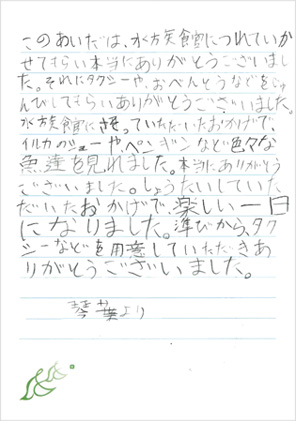 このあいだは、水方矣食官につれていか
せてもらい本当にありがとうございまし
た。それにタクシーや、おべんとうなどをじゅ
んびしてもらいありがとうございました。
水方矣食官にさそっていただいたおかげで、
イルカのショーや、ペンギンなど色々な
魚達を見れました。本当にありがとう
ございました。しょうたいしていた
だいたおかげで、楽しい一日
になりました。準びから、タク
シーなどを用意していただきあ
りがとうございました。
琴葉より